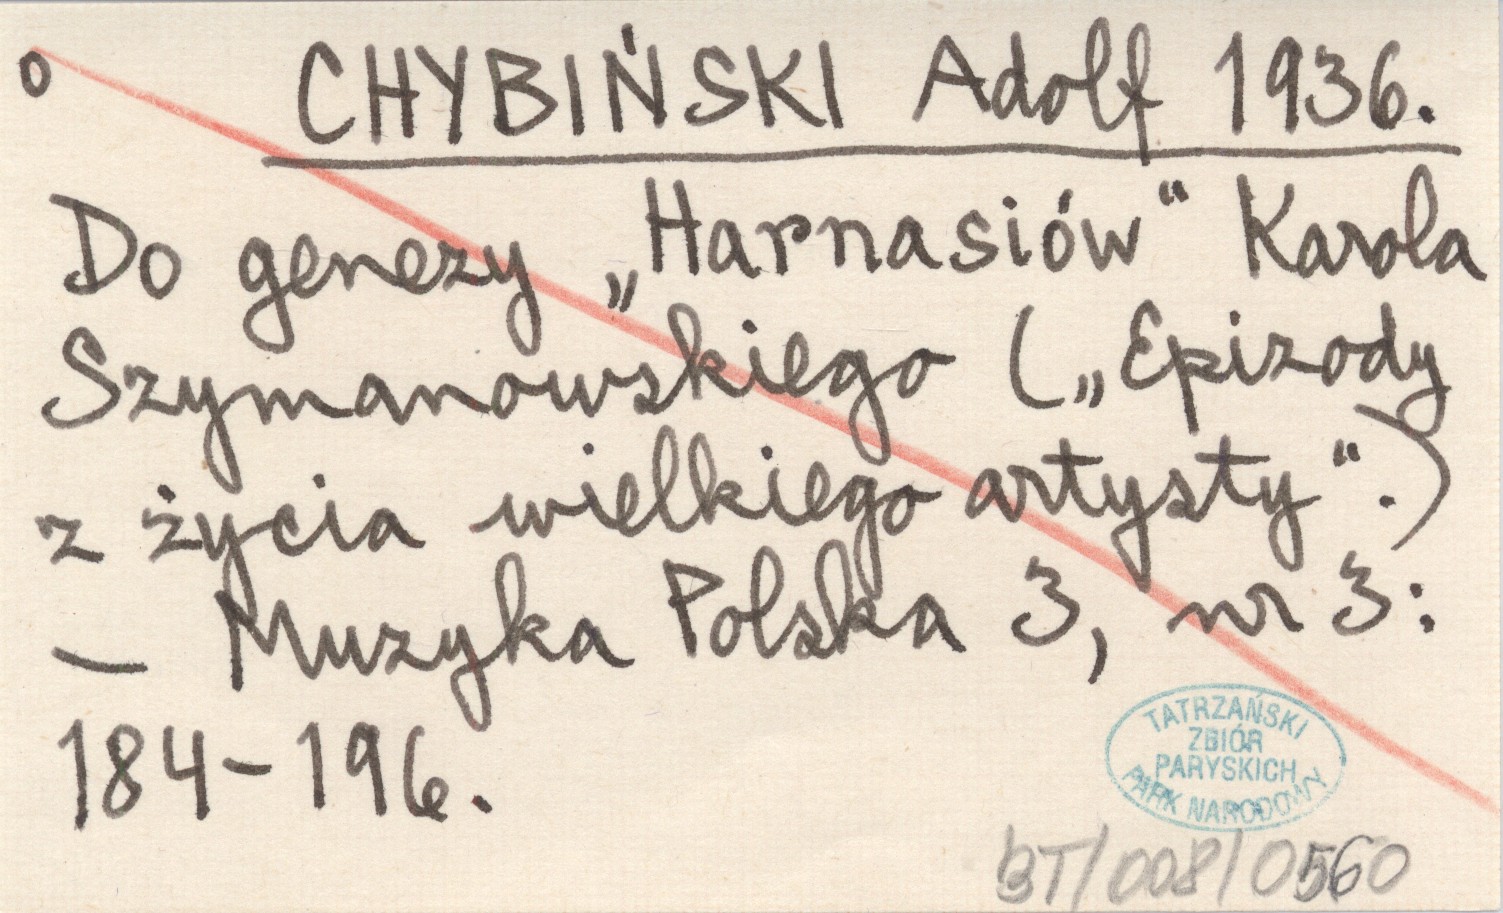 o CHYBIŃSKI Adolf 1936.
Do genezy „Harnasiów“ Karola
Szymanowskiego („Epizody
z życia wielkiego artysty“.)
— Muzyka Polska 3, nr 3:
184-196.
TATRZAŃSKI
ZBIÓR
PARYSKICH
PARK NARODOWY
BT/008/0560